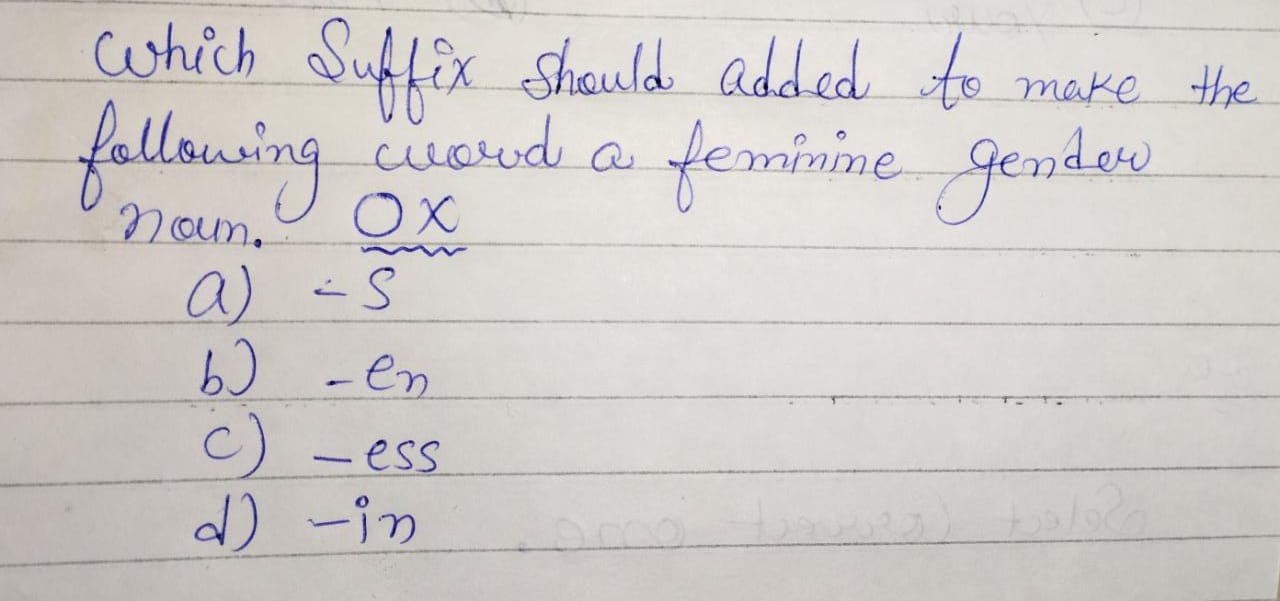 Which Suffix should added to make the
following word a feminine gender
noun. OX
a) - S
b) - en
c) - ess
d) - in